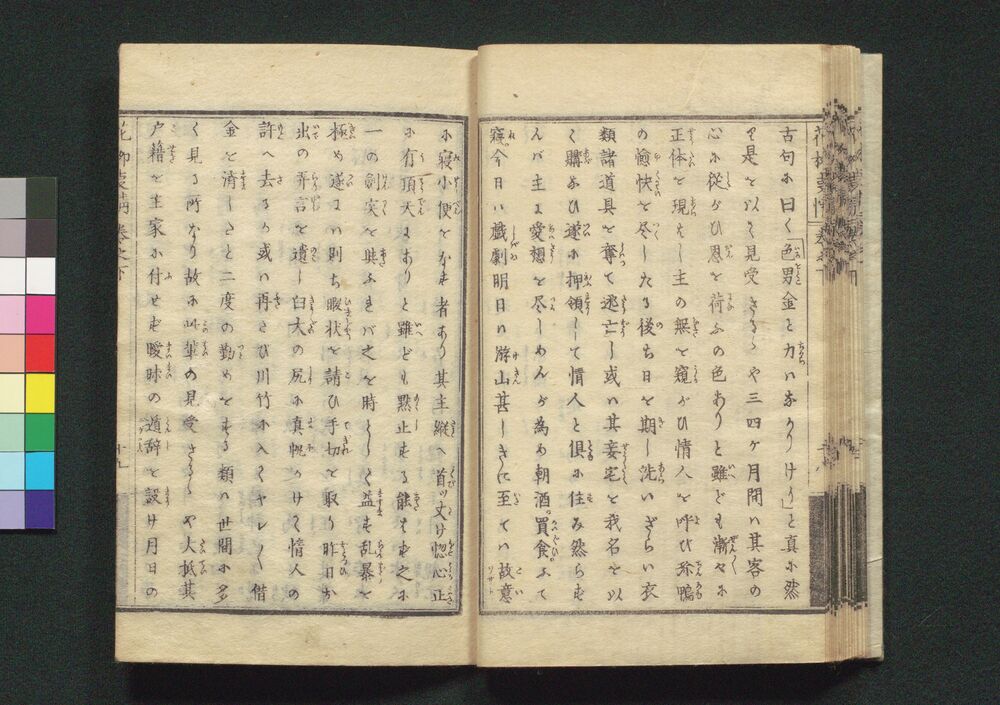 古句ニ曰く「色男金と力ハなかりけり」と真ニ然
り是を以て見受さるゝや三四ヶ月間ハ其客の
心ニ従がひ恩を荷ふの色ありと雖ども漸々ニ
正体を現ハし主の無を窺がひ情人を呼び
の愉快を尽したる後ち日を期し洗いざらい衣
類諸道具を奪て逃亡し或ハ其妾宅を我名を以
て購なひ遂ニ押領して情人と倶ニ住み然らずん
バ主に愛想を尽しめんが為め朝酒買食ふて
寝今日ハ戯劇明日ハ游山甚しきに至てハ故意
に寝小便をなす者あり其主縦へ首ッ丈け惚心止
ニ有頂天にありと雖ども黙止する能はず之ニ
一の剣突を與ふれバ之を時とし益す乱暴を
極め遂にハ則ち暇状を請ひ手切を取り昨日か
出の弄言を遺し白犬の尻ニ真帆かけて情人の
許へ去るか或ハ再たび川竹ニ入てヤレ〳〵借
金を済したと二度の勤めをする類ハ世間ニ多
く見る所なり故ニ此輩の見受さるゝや大抵其
戸籍を主家ニ付せず曖昧の遁辞を設け月日の
花柳裏情 巻之下